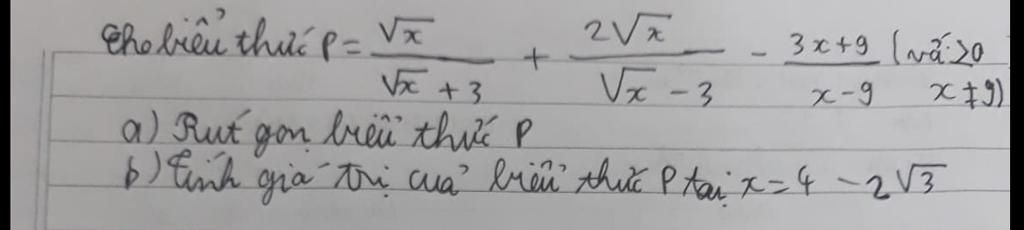 Cho biểu thức P = √x / (√x + 3) + 2√x / (√x - 3) - (3x+9) / (x-9) (với x ≥ 0
x ≠ 9)
a) Rút gọn biểu thức P
b) Tính giá trị của biểu thức P tại x = 4 - 2√3